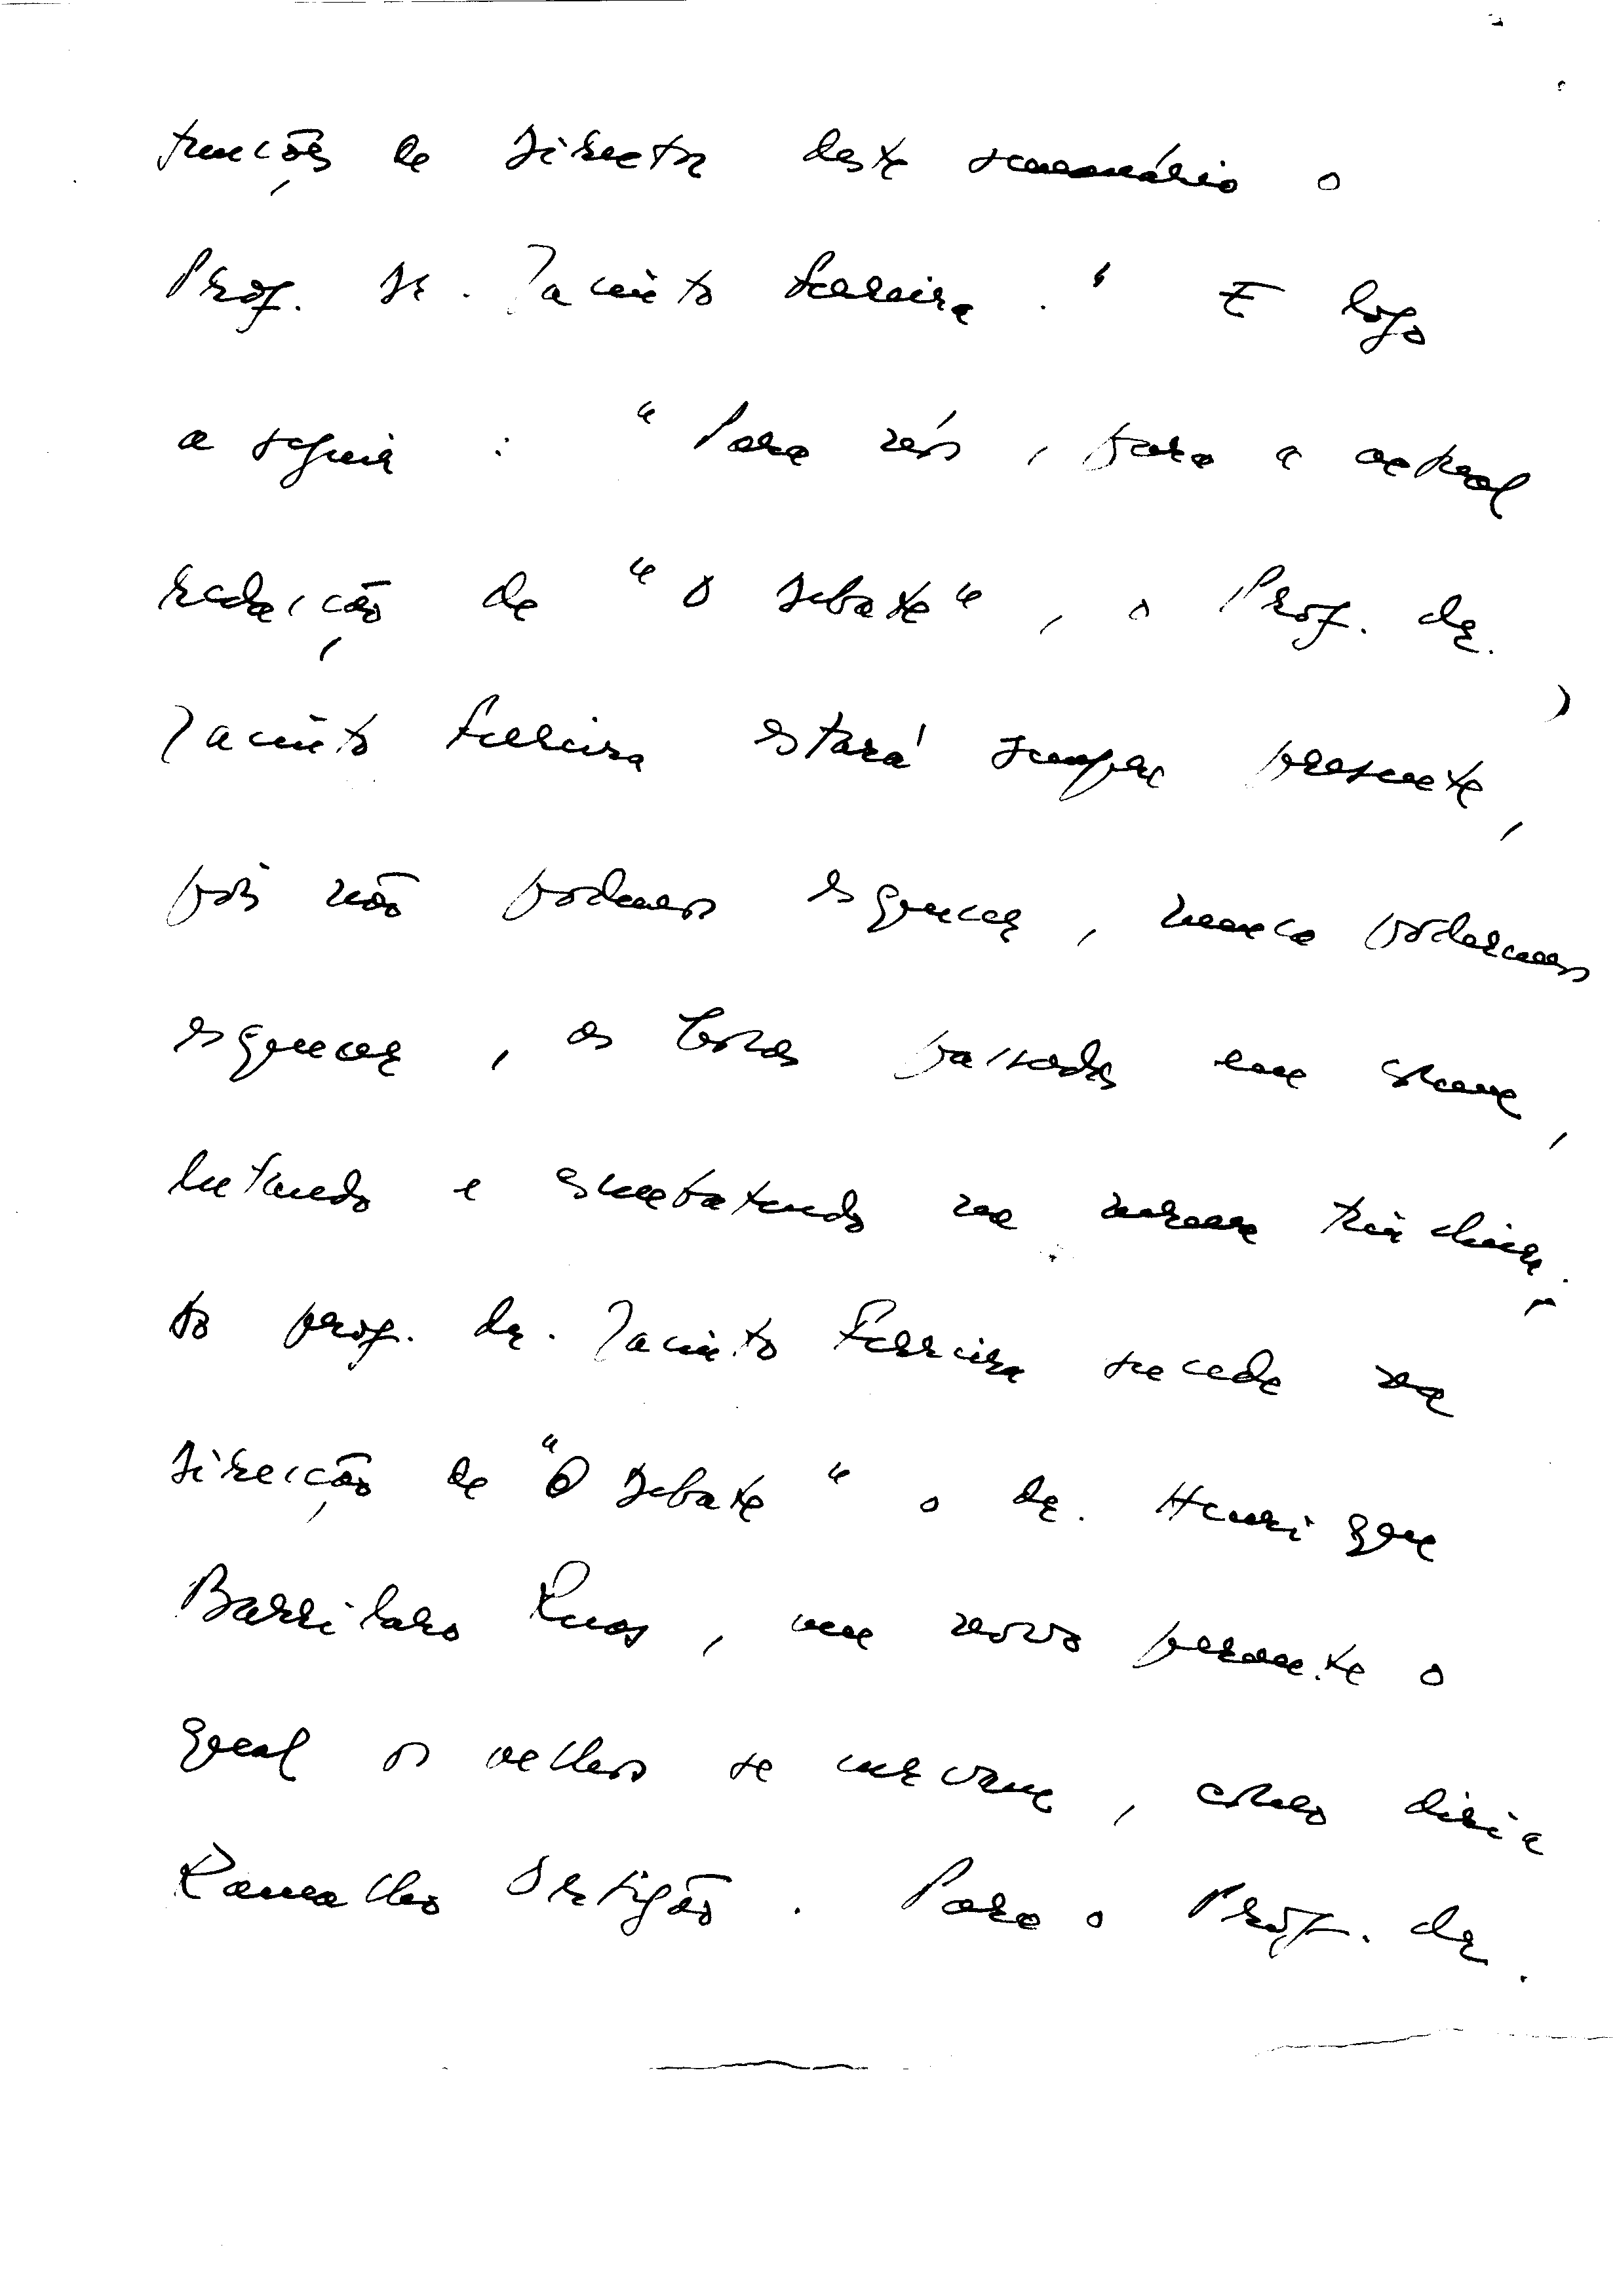 funções de Director deste semanário o
Prof. Dr. Jacinto Ferreira." E logo
a seguir : "Para nós, para a actual
redacção de "O Debate", o Prof. dr.
Jacinto Ferreira estará sempre presente,
pois não podemos esquecer, nunca poderemos
esquecer, as horas passadas em comum,
lutando e combatendo na mesma trincheira."
Ao prof. dr. Jacinto Ferreira sucede na
direcção de "O Debate" o dr. Henrique
Barrilaro Ruas, um novo perante o
qual os velhos se curvam, como diria
Ramalho Ortigão. Para o Prof. dr.